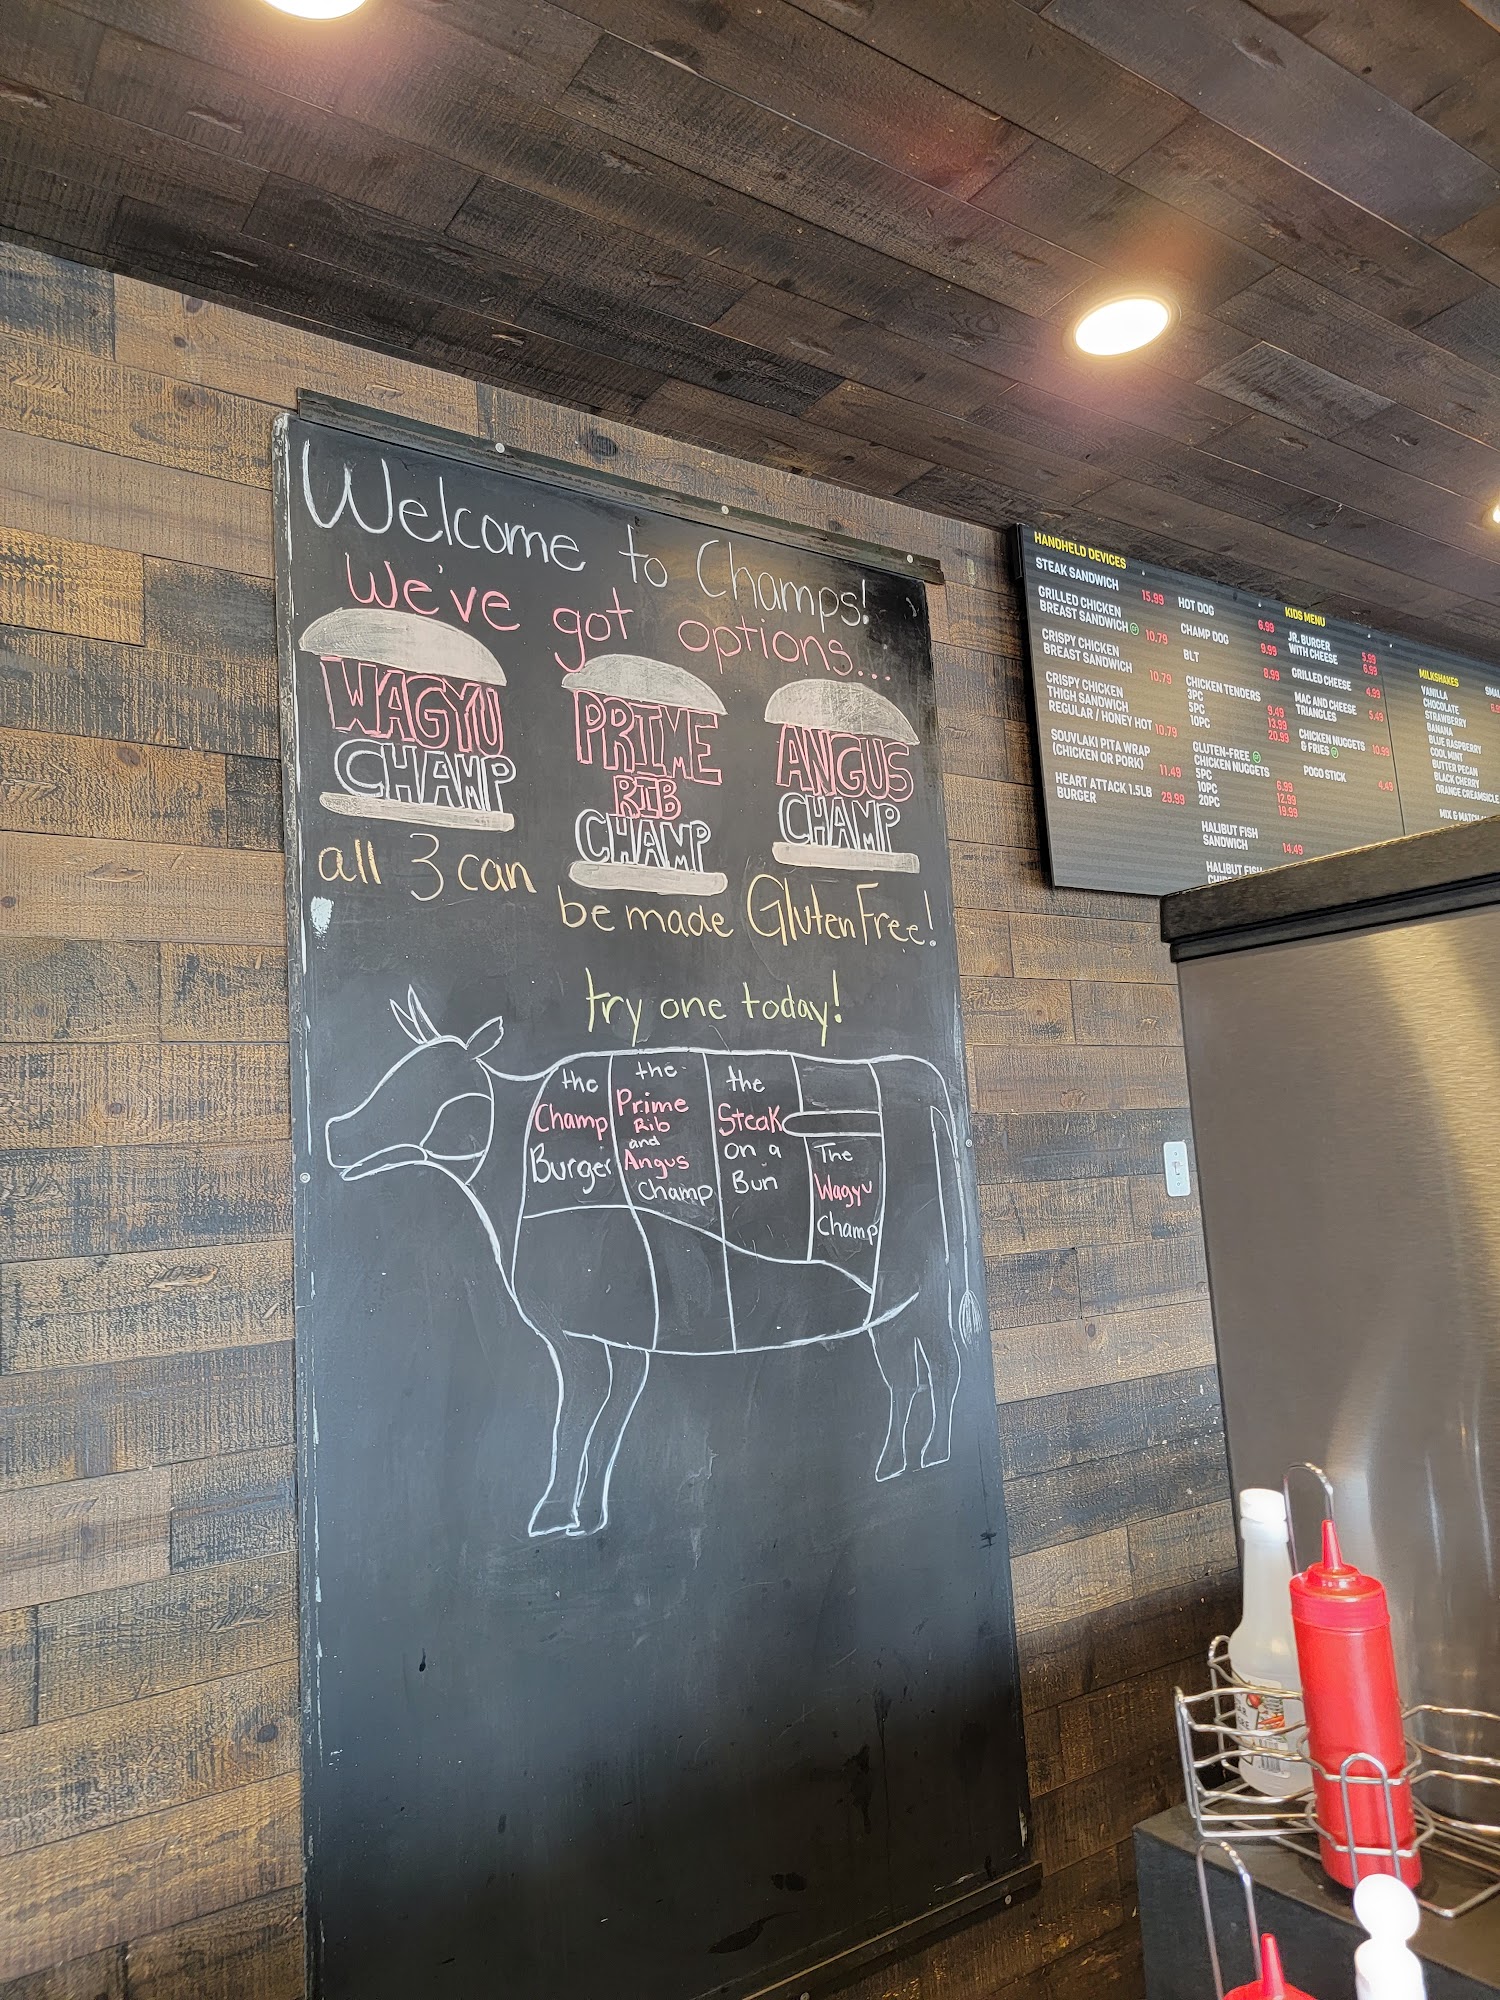 Welcome to Champs!
We've got options...
WAGYU
CHAMP
PRIME
RIB
CHAMP
ANGUS
CHAMP
all 3 can
be made Gluten Free!
try one today!
the
Champ
Burger
the
Prime
Rib
and
Angus
Champ
the
Steak
on a
Bun
The
Wagyu
Champ
HANDHELD DEVICES
STEAK SANDWICH
15.99
GRILLED CHICKEN
BREAST SANDWICH 10.79
CRISPY CHICKEN
BREAST SANDWICH
10.79
CRISPY CHICKEN
THIGH SANDWICH
REGULAR / HONEY HOT 10.79
SOUVLAKI PITA WRAP
(CHICKEN OR PORK)
11.49
HEART ATTACK 1.5LB
BURGER 29.99
HOT DOG
6.99
CHAMP DOG
9.99
BLT
8.99
CHICKEN TENDERS
3PC 9.49
5PC 13.99
10PC 20.99
GLUTEN-FREE
CHICKEN NUGGETS
5PC 6.99
10PC 12.99
20PC 19.99
HALIBUT FISH
SANDWICH 14.49
HALIBUT FISH
KIDS MENU
JR. BURGER 5.99
WITH CHEESE 6.99
GRILLED CHEESE 4.99
MAC AND CHEESE
TRIANGLES 5.49
CHICKEN NUGGETS
& FRIES 10.99
POGO STICK
4.49
MILKSHAKES
VANILLA
CHOCOLATE
STRAWBERRY
BANANA
BLUE RASPBERRY
COOL MINT
BUTTER PECAN
BLACK CHERRY
ORANGE CREAMSICLE
MIX & MATCH